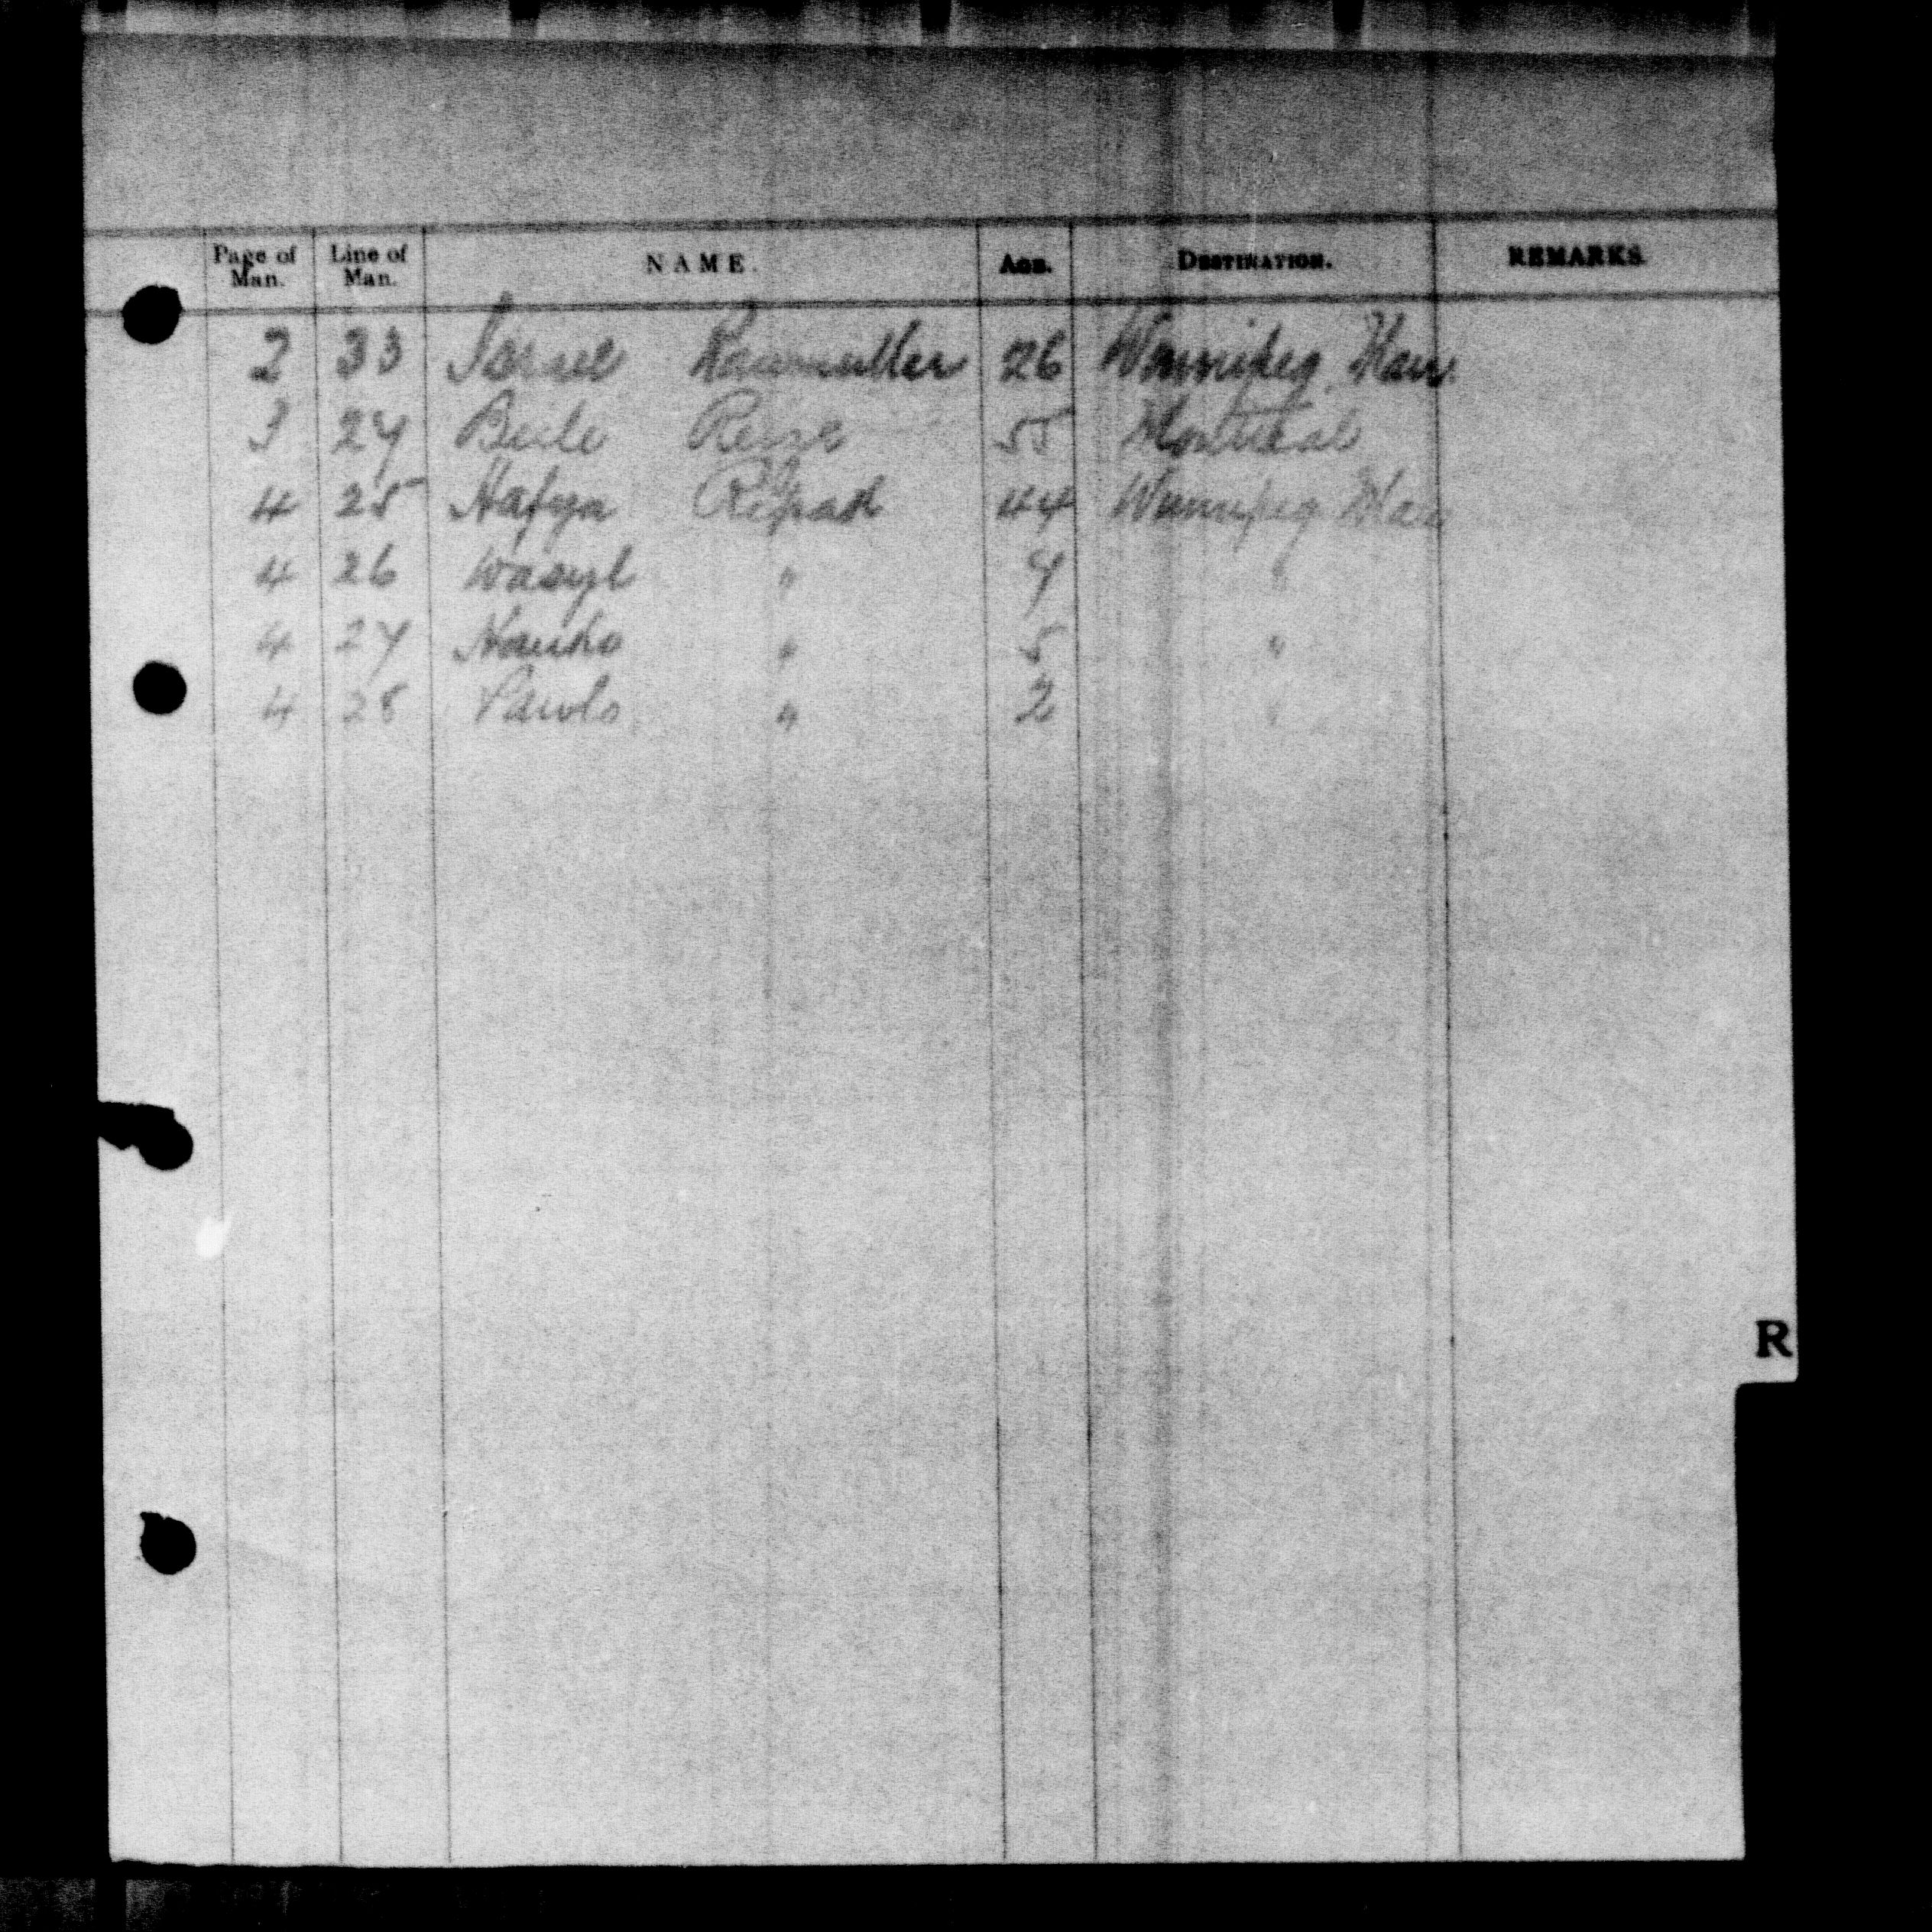 Page of Man. Line of Man. NAME. AGE. DESTINATION. REMARKS.
2 33 Israel 26 Winnipeg Man.
3 27 Beile Reize 55 Montreal
4 25 Hafya 44 Winnipeg Man
4 26 Wasyl " 7 "
4 27 " 5 "
4 28 Pawlo " 2 "
R